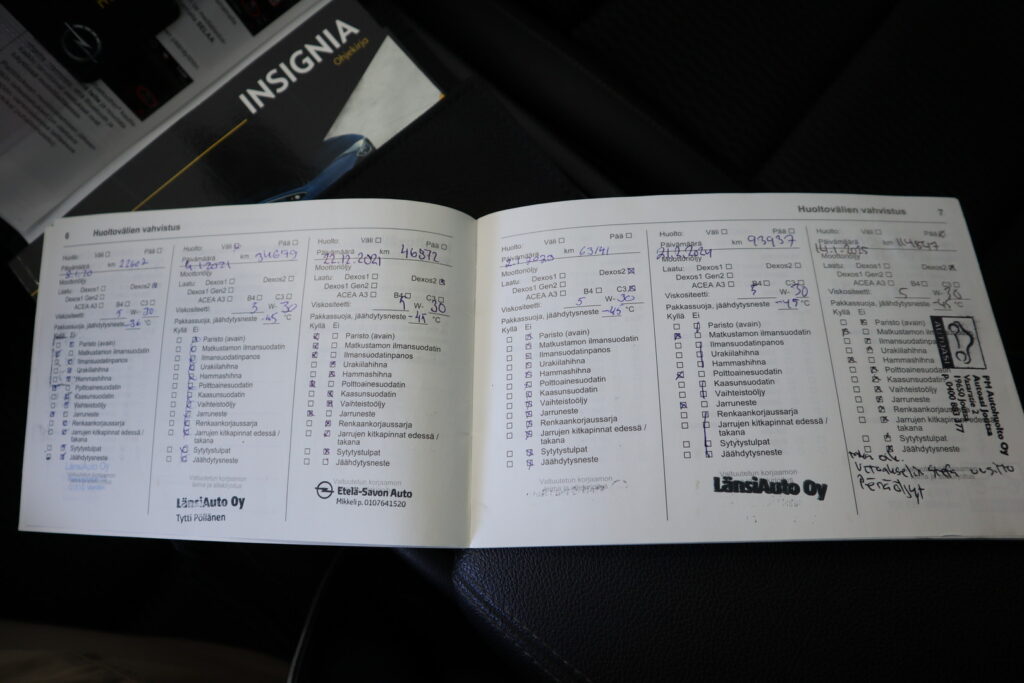 INSIGNIA
Ohjekirja
6 Huoltovälien vahvistus
Huolto: Väli Pää
Päivämäärä km 22602
Moottoriöljy
Laatu: Dexos1 Dexos2
Dexos1 Gen2
ACEA A3 B4 C3
Viskositeetti: 5 W- 30
Pakkassuoja, jäähdytysneste -36 °C
Kyllä Ei
Paristo (avain)
Matkustamon ilmansuodatin
Ilmansuodatinpanos
Urakiilahihna
Hammashihna
Polttoainesuodatin
Kaasunsuodatin
Vaihteistoöljy
Jarruneste
Renkaankorjaussarja
Jarrujen kitkapinnat edessä /
takana
Sytytystulpat
Jäähdytysneste
LänsiAuto Oy
Huolto: Väli Pää
Päivämäärä km 34679
4.1.2021
Moottoriöljy
Laatu: Dexos1 Dexos2
Dexos1 Gen2
ACEA A3 B4 C3
Viskositeetti: 5 W- 30
Pakkassuoja, jäähdytysneste -45 °C
Kyllä Ei
Paristo (avain)
Matkustamon ilmansuodatin
Ilmansuodatinpanos
Urakiilahihna
Hammashihna
Polttoainesuodatin
Kaasunsuodatin
Vaihteistoöljy
Jarruneste
Renkaankorjaussarja
Jarrujen kitkapinnat edessä /
takana
Sytytystulpat
Jäähdytysneste
LänsiAuto Oy
Tytti Pöllänen
Huolto: Väli Pää
Päivämäärä km 46872
22.12.2021
Moottoriöljy
Laatu: Dexos1 Dexos2
Dexos1 Gen2
ACEA A3 B4 C3
Viskositeetti: 5 W- 30
Pakkassuoja, jäähdytysneste -45 °C
Kyllä Ei
Paristo (avain)
Matkustamon ilmansuodatin
Ilmansuodatinpanos
Urakiilahihna
Hammashihna
Polttoainesuodatin
Kaasunsuodatin
Vaihteistoöljy
Jarruneste
Renkaankorjaussarja
Jarrujen kitkapinnat edessä /
takana
Sytytystulpat
Jäähdytysneste
Valtuutetun korjaamon
Etelä-Savon Auto
Mikkeli p. 0107641520
Huoltovälien vahvistus 7
Huolto: Väli Pää
Päivämäärä km 63141
Moottoriöljy
Laatu: Dexos1 Dexos2
Dexos1 Gen2
ACEA A3 B4 C3
Viskositeetti: 5 W- 30
Pakkassuoja, jäähdytysneste -45 °C
Kyllä Ei
Paristo (avain)
Matkustamon ilmansuodatin
Ilmansuodatinpanos
Urakiilahihna
Hammashihna
Polttoainesuodatin
Kaasunsuodatin
Vaihteistoöljy
Jarruneste
Renkaankorjaussarja
Jarrujen kitkapinnat edessä /
takana
Sytytystulpat
Jäähdytysneste
Valtuutetun korjaamon
Huolto: Väli Pää
Päivämäärä km 93937
Moottoriöljy
Laatu: Dexos1 Dexos2
Dexos1 Gen2
ACEA A3 B4 C3
Viskositeetti: 5 W- 30
Pakkassuoja, jäähdytysneste -45 °C
Kyllä Ei
Paristo (avain)
Matkustamon ilmansuodatin
Ilmansuodatinpanos
Urakiilahihna
Hammashihna
Polttoainesuodatin
Kaasunsuodatin
Vaihteistoöljy
Jarruneste
Renkaankorjaussarja
Jarrujen kitkapinnat edessä /
takana
Sytytystulpat
Jäähdytysneste
Valtuutetun korjaamon
LänsiAuto Oy
Huolto: Väli Pää
Päivämäärä km
14.1.2025
Moottoriöljy
Laatu: Dexos1 Dexos2
Dexos1 Gen2
ACEA A3 B4 C3
Viskositeetti: 5 W- 30
Pakkassuoja, jäähdytysneste
Kyllä Ei
Paristo (avain)
Matkustamon ilmansuodatin
Ilmansuodatinpanos
Urakiilahihna
Hammashihna
Polttoainesuodatin
Kaasunsuodatin
Vaihteistoöljy
Jarruneste
Renkaankorjaussarja
Jarrujen kitkapinnat edessä /
takana
Sytytystulpat
Jäähdytysneste
PH Autohuolto Oy